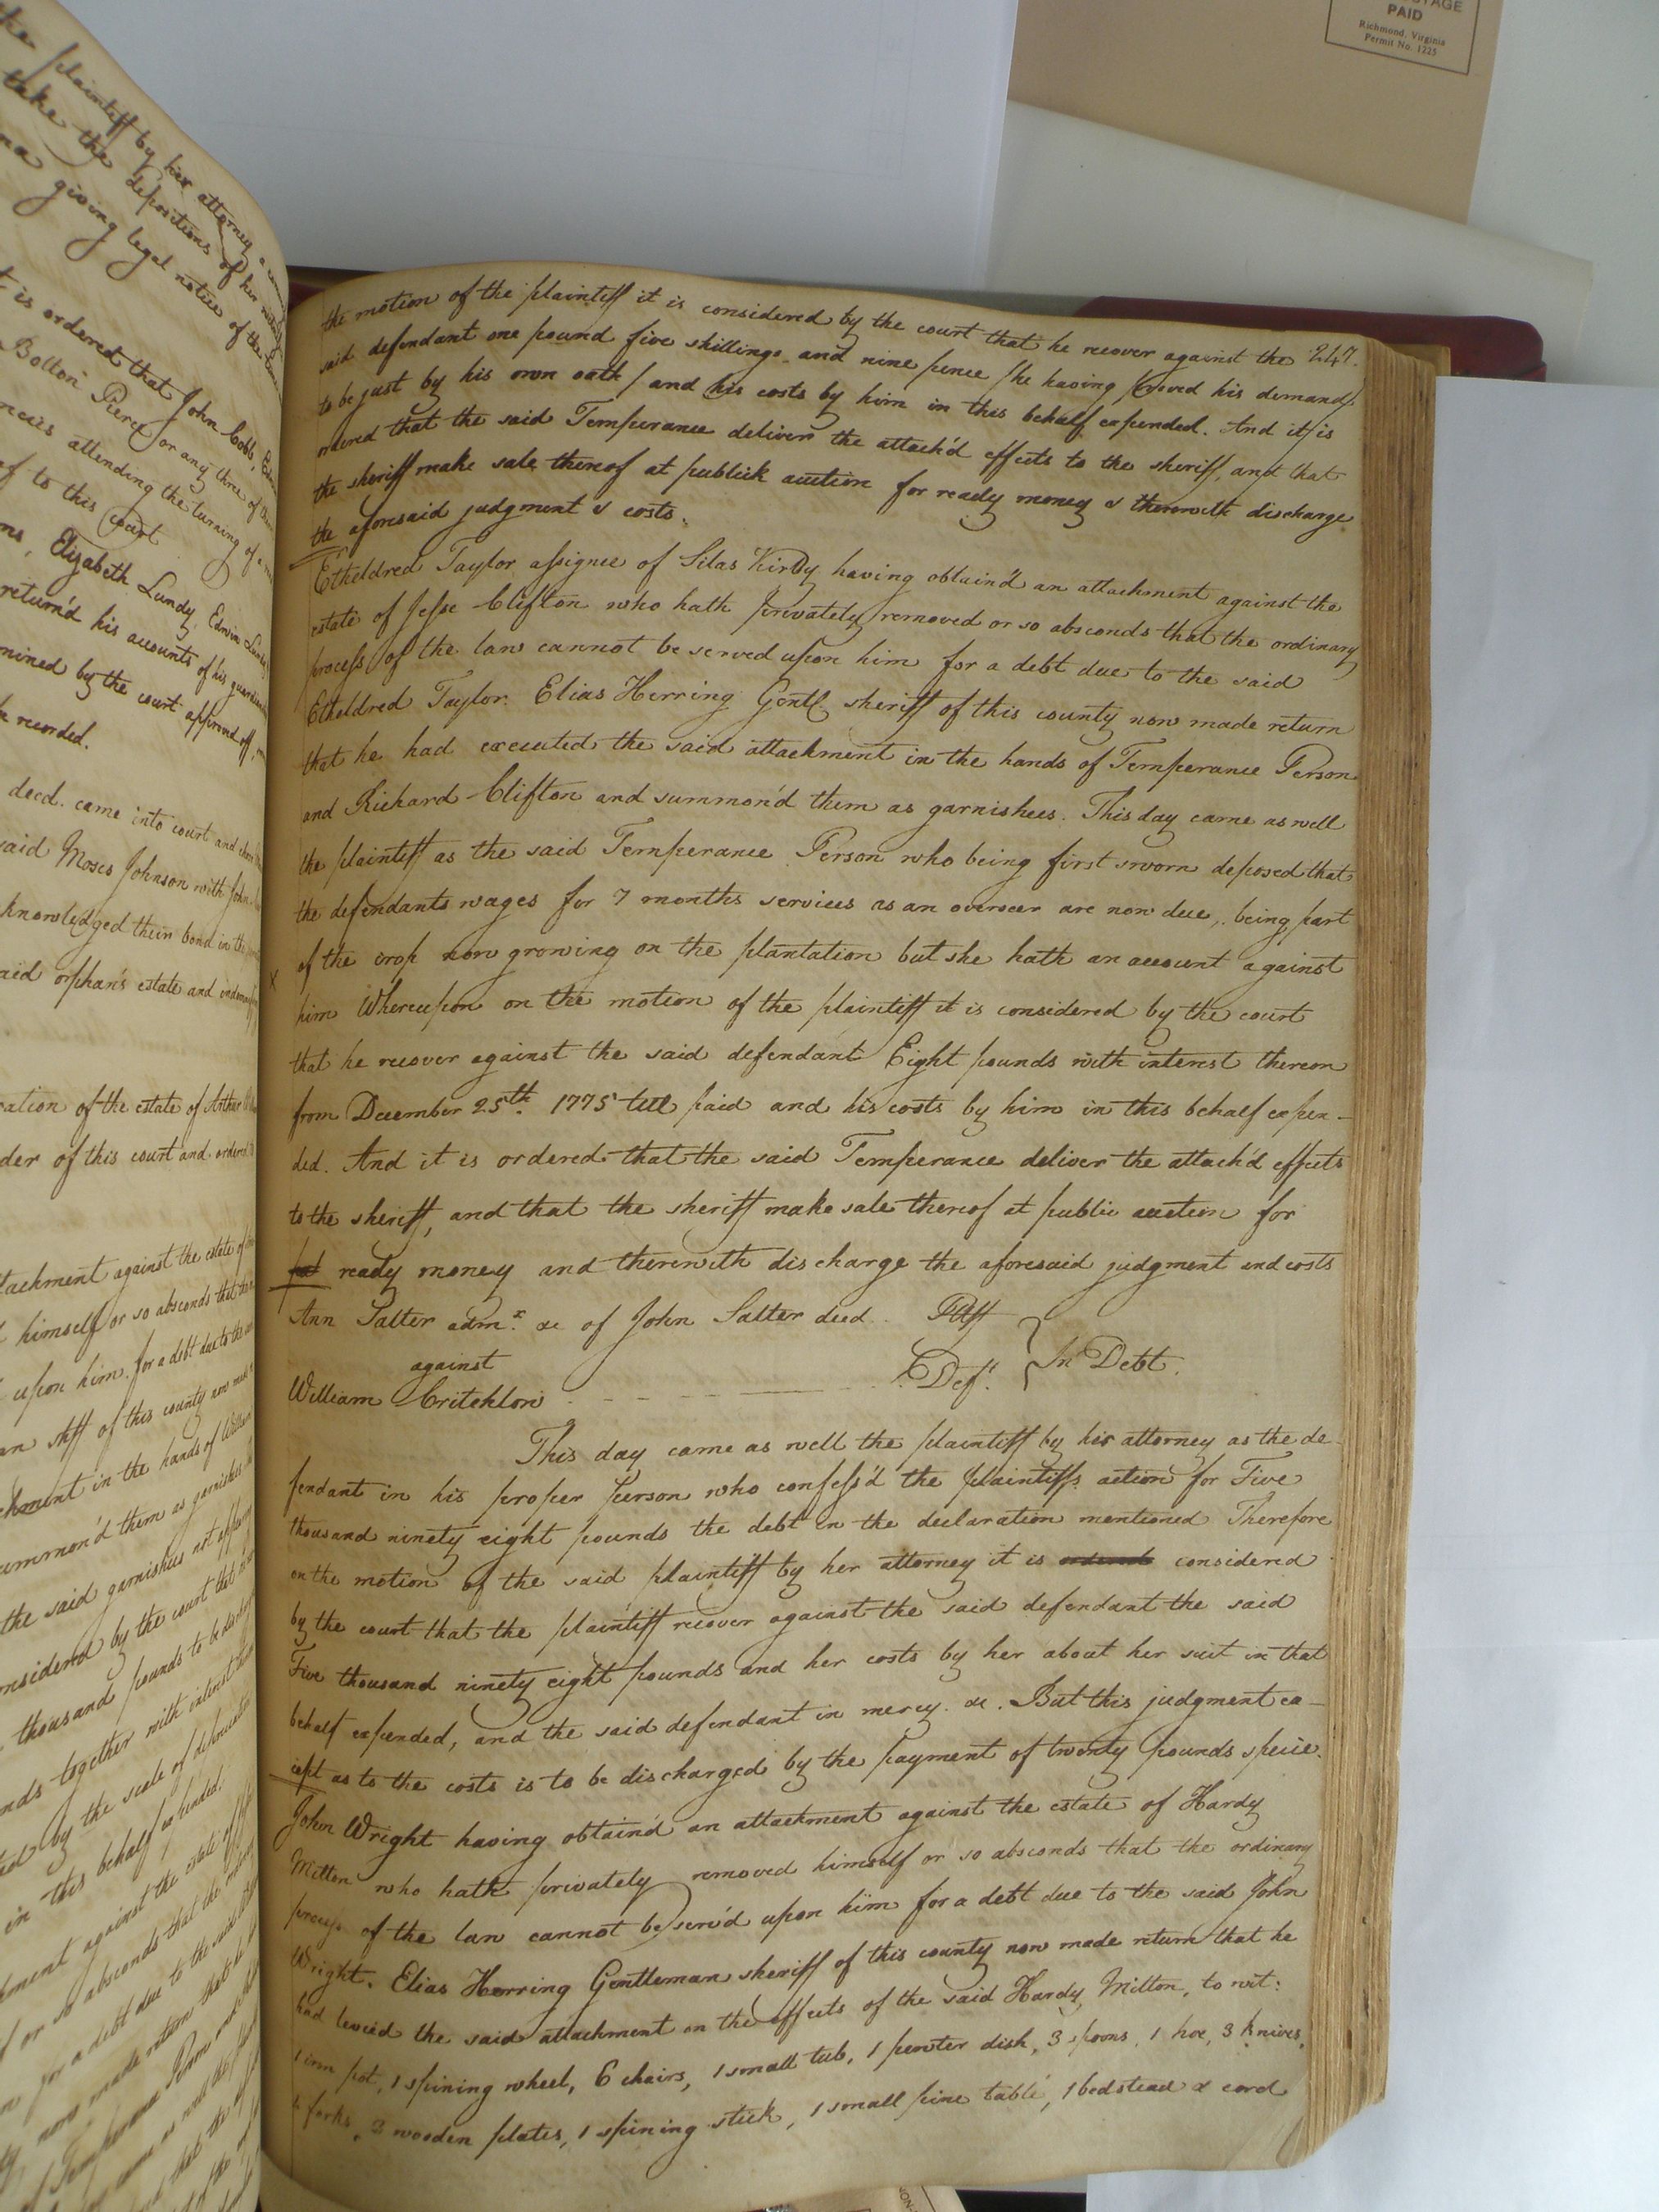 PAID
Richmond, Virginia
Permit No. 1225
the plaintiff by her attorney a
take the depositions of her
giving legal notice of the
is ordered that John Cobb,
Bolton Pierce or any three of
attending the turning of a
to this Court
Elizabeth Lundy, Edwin
return'd his accounts of his
mined by the court approved off,
recorded.
decd. came into court and
said Moses Johnson with John
knowledged their bond in the
said orphan's estate and
ration of the estate of Arthur
der of this court and ordered
tachment against the estate of
himself or so absconds that
upon him. for a debt due to
shff of this county now
chment in the hands of William
ummon'd them as garnishees
the said garnishees not
nsidered by the court that
thousand pounds to be
nds together with interest
by the scale of
in this behalf expended.
hment against the estate of
or so absconds that the
for a debt due to the said
now made return that he
of Temperance Person
came as well the
247.
the motion of the plaintiff it is considered by the court that he recover against the
said defendant one pound five shillings and nine pence /he having proved his demand
to be just by his own oath/ and his costs by him in this behalf expended. And it is
ordered that the said Temperance deliver the attach'd effects to the sheriff, and that
the sheriff make sale thereof at publick auction for ready money & therewith discharge
the aforesaid judgment & costs.
Etheldred Taylor assignee of Silas Kirby having obtain'd an attachment against the
estate of Jesse Clifton who hath privately removed or so absconds that the ordinary
process of the law cannot be served upon him for a debt due to the said
Etheldred Taylor. Elias Herring Gentl. sheriff of this county now made return
that he had executed the said attachment in the hands of Temperance Person
and Richard Clifton and summon'd them as garnishees. This day came as well
the plaintiff as the said Temperance Person who being first sworn deposed that
the defendants wages for 7 months services as an overseer are now due, being part
x of the crop now growing on the plantation but she hath an account against
him Whereupon on the motion of the plaintiff it is considered by the court
that he recover against the said defendant Eight pounds with interest thereon
from December 25th. 1775 till paid and his costs by him in this behalf expen-
ded. And it is ordered that the said Temperance deliver the attach'd effects
to the sheriff, and that the sheriff make sale thereof at public auction for
ready money and therewith discharge the aforesaid judgment and costs
Ann Salter admx. &c of John Salter decd. Plff
against } In Debt.
William Critchlow Deft.
This day came as well the plaintiff by his attorney as the de-
fendant in his proper person who confess'd the plaintiffs action for Five
thousand ninety eight pounds the debt in the declaration mentioned Therefore
on the motion of the said plaintiff by her attorney it is ordered considered
by the court that the plaintiff recover against the said defendant the said
Five thousand ninety eight pounds and her costs by her about her suit in that
behalf expended, and the said defendant in mercy. &c. But this judgment ex-
cept as to the costs is to be discharged by the payment of twenty pounds specie.
John Wright having obtain'd an attachment against the estate of Hardy
Milton who hath privately removed himself or so absconds that the ordinary
process of the law cannot be serv'd upon him for a debt due to the said John
Wright. Elias Herring Gentleman sheriff of this county now made return that he
had levied the said attachment on the effects of the said Hardy Milton, to wit:
1 iron pot, 1 spining wheel, 6 chairs, 1 small tub, 1 pewter dish, 3 spoons, 1 hoe, 3 knives,
forks, 3 wooden plates, 1 spining stick, 1 small pine table, 1 bedstead & cord